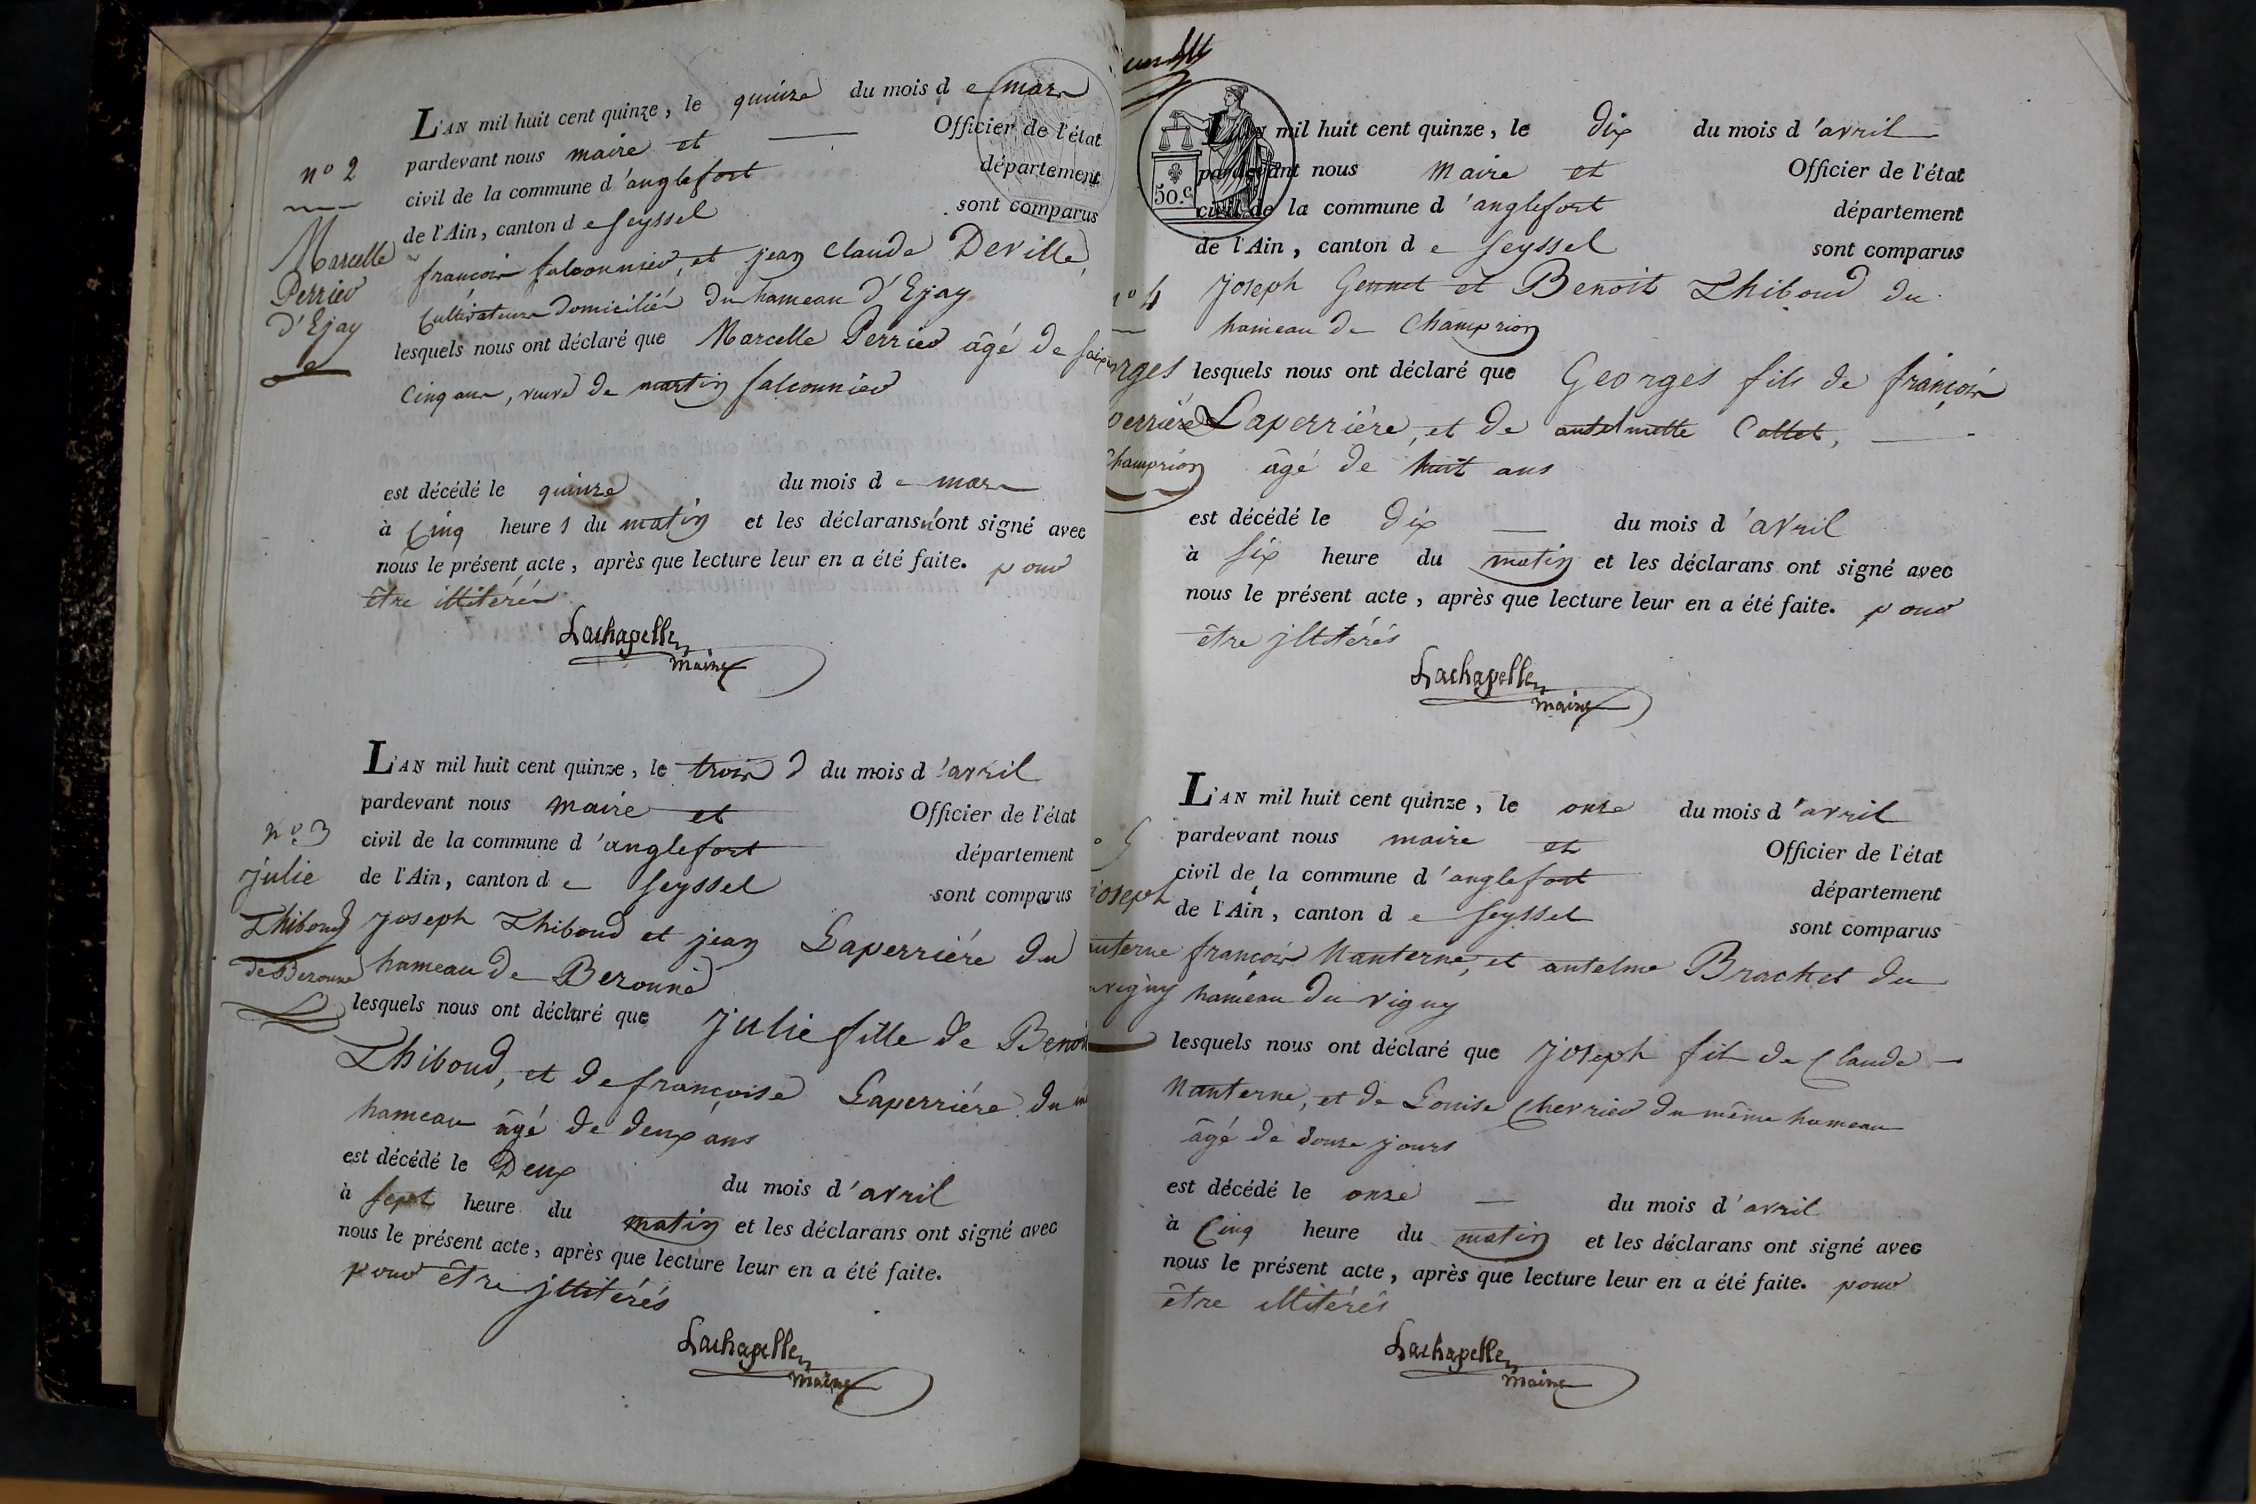 L'AN mil huit cent quinze, le quinze du mois d e mars
pardevant nous maire et Officier de l'état
civil de la commune d 'anglefort département
de l'Ain, canton d e Seyssel sont comparus
françois falconnier, et jean claude Deville,
Cultivateurs domiciliés du hameau d'Ejay
lesquels nous ont déclaré que Marcelle Perrier âgé de
Cinq ans, veuve de martin falconnier
est décédé le quinze du mois d e mars
à Cinq heure s du matin et les déclarans n'ont signé avec
nous le présent acte, après que lecture leur en a été faite. pour
être illitérés
Lachapelle
maire
n° 2
Marcelle
Perrier
d'Ejay
L'AN mil huit cent quinze, le trois du mois d 'avril
pardevant nous maire et Officier de l'état
civil de la commune d 'anglefort département
de l'Ain, canton d e Seyssel sont comparus
joseph Thiboud et jean Laperriére du
hameau de Beronne
lesquels nous ont déclaré que julie fille de Benoit
Thiboud, et de françoise Laperriére du
hameau âgé de deux ans
est décédé le Deux du mois d'avril
à sept heure du matin et les déclarans ont signé avec
nous le présent acte, après que lecture leur en a été faite.
pour être jllitérés
Lachapelle
maire
n° 3
julie
Thiboud
de Beronne
50. c
L'AN mil huit cent quinze, le dix du mois d 'avril
pardevant nous Maire et Officier de l'état
civil de la commune d 'anglefort département
de l'Ain, canton d e Seyssel sont comparus
joseph Gennet et Benoit Thiboud du
hameau de Champrion
lesquels nous ont déclaré que Georges fils de françois
Laperriére, et de antelmette Collet,
âgé de huit ans
est décédé le dix du mois d 'avril
à six heure du matin et les déclarans ont signé avec
nous le présent acte, après que lecture leur en a été faite. pour
être jllitérés
Lachapelle
maire
n° 4
rges
perriére
Champrion
L'AN mil huit cent quinze, le onze du mois d 'avril
pardevant nous maire et Officier de l'état
civil de la commune d 'anglefort département
de l'Ain, canton d e Seyssel sont comparus
françois Nanterne, et antelme Brachet du
hameau du vigny
lesquels nous ont déclaré que joseph fils de Claude
Nanterne, et de Louise Chevrier du même hameau
âgé de douze jours
est décédé le onze du mois d'avril
à Cinq heure du matin et les déclarans ont signé avec
nous le présent acte, après que lecture leur en a été faite. pour
être illitérés
Lachapelle
maire
° 5
joseph
anterne
uvigny